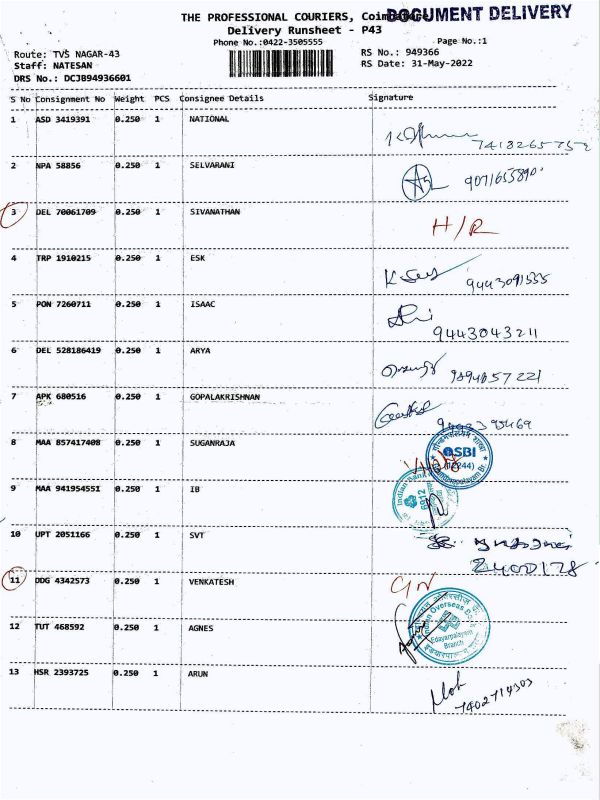 THE PROFESSIONAL COURIERS, Coimbatore
DOCUMENT DELIVERY
Delivery Runsheet - P43
Phone No.:0422-3505555
Page No.:1
Route: TVS NAGAR-43
RS No.: 949366
Staff: NATESAN
RS Date: 31-May-2022
DRS No.: DCJB94936601
S No Consignment No Weight PCS Consignee Details Signature
1 ASD 3419391 0.250 1 NATIONAL
7418265752
2 NPA 58856 0.250 1 SELVARANI
9071655890
3 DEL 70061709 0.250 1 SIVANATHAN
H/R
4 TRP 1910215 0.250 1 ESK
9443091535
5 PON 7260711 0.250 1 ISAAC
9443043211
6 DEL 528186419 0.250 1 ARYA
7 APK 680516 0.250 1 GOPALAKRISHNAN
8 MAA 857417408 0.250 1 SUGANRAJA
SBI
9 MAA 941954551 0.250 1 IB
Indian Bank
10 UPT 2051166 0.250 1 SVT
11 DDG 4342573 0.250 1 VENKATESH
12 TUT 468592 0.250 1 AGNES
Indian Overseas
Edayarpalayam
Branch
13 HSR 2393725 0.250 1 ARUN
7402714303